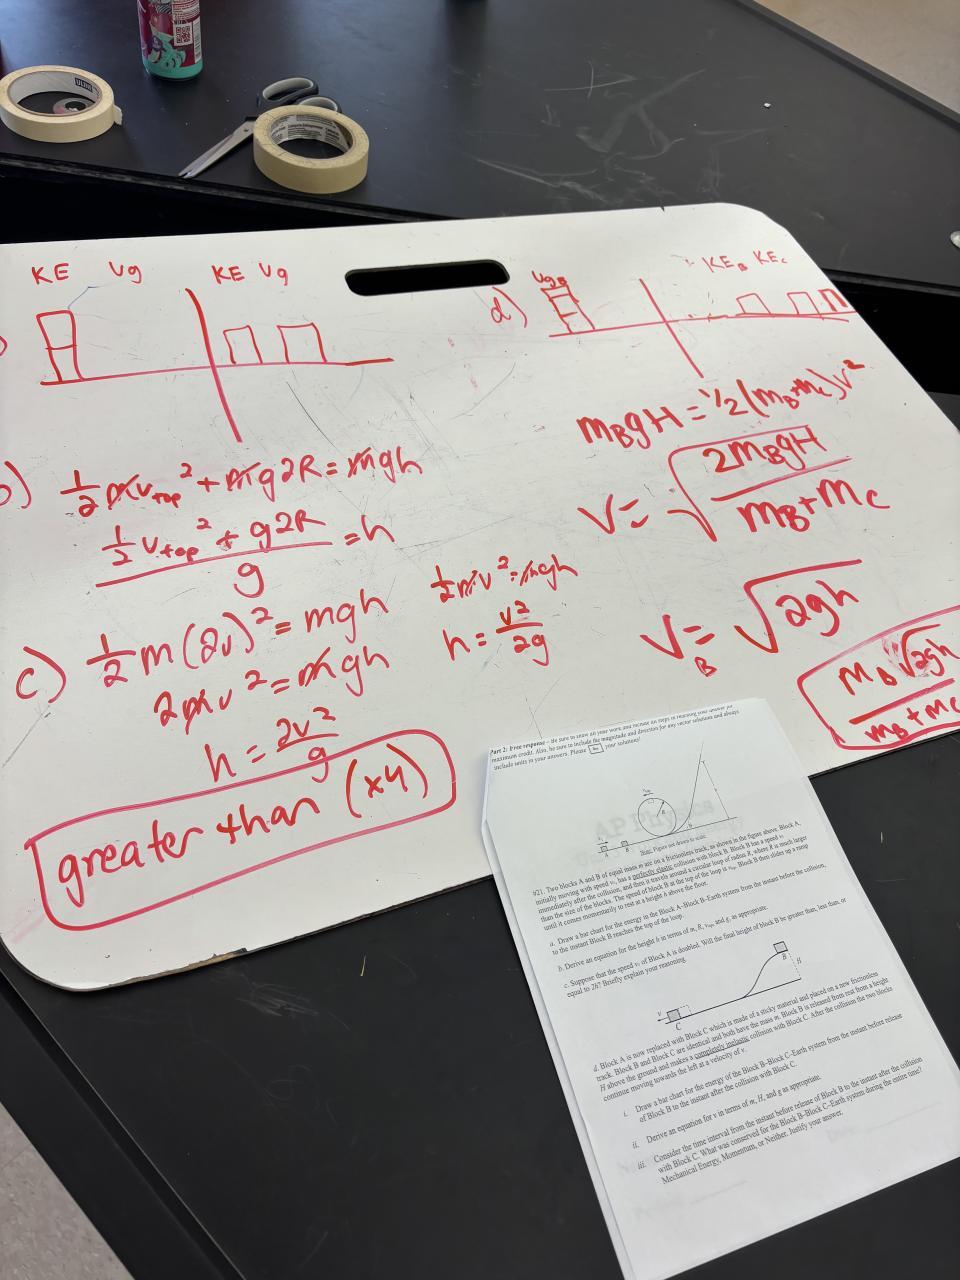 KE Ug KE Ug
b) 1/2 mv_top² + mg2R = mgh
1/2 v_top² + g2R / g = h
c) 1/2 m(2v)² = mgh
2mv² = mgh
h = 2v²/g
greater than (x4)
1/2 mv² = mgh
h = v²/2g
d) UgB KE_B KE_C
m_BgH = 1/2(m_B+m_C)v²
V = √(2m_BgH / m_B+m_C)
V_B = √2gh
m_B √2gh / m_B+m_C
Part 2: Free response – Be sure to show all your work and include all steps in reaching your answer for
maximum credit. Also, be sure to include the magnitude and direction for any vector solutions and always
include units in your answers. Please box your solutions!
A B
Note: Figure not drawn to scale.
#21. Two blocks A and B of equal mass m are on a frictionless track, as shown in the figure above. Block A,
initially moving with speed v₀, has a perfectly elastic collision with block B. Block B has a speed v₀
immediately after the collision, and then it travels around a circular loop of radius R, where R is much larger
than the size of the blocks. The speed of block B at the top of the loop is v_top. Block B then slides up a ramp
until it comes momentarily to rest at a height h above the floor.
a. Draw a bar chart for the energy in the Block A–Block B–Earth system from the instant before the collision,
to the instant Block B reaches the top of the loop.
b. Derive an equation for the height h in terms of m, R, v_top, and g, as appropriate.
c. Suppose that the speed v₀ of Block A is doubled. Will the final height of block B be greater than, less than, or
equal to 2h? Briefly explain your reasoning.
v C B H
d. Block A is now replaced with Block C which is made of a sticky material and placed on a new frictionless
track. Block B and Block C are identical and both have the mass m. Block B is released from rest from a height
H above the ground and makes a completely inelastic collision with Block C. After the collision the two blocks
continue moving towards the left at a velocity of v.
i. Draw a bar chart for the energy of the Block B–Block C–Earth system from the instant before release
of Block B to the instant after the collision with Block C.
ii. Derive an equation for v in terms of m, H, and g as appropriate.
iii. Consider the time interval from the instant before release of Block B to the instant after the collision
with Block C. What was conserved for the Block B–Block C–Earth system during the entire time?
Mechanical Energy, Momentum, or Neither. Justify your answer.